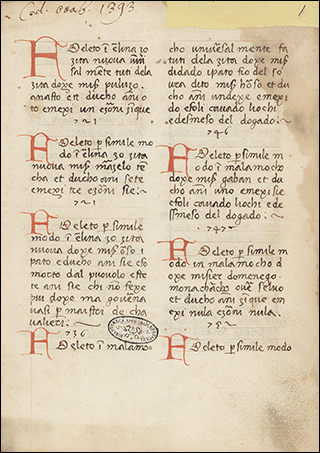 Cod. Ottob. 1393
1
A Deleto ī elina zo
zita nuova unīī
sal mēte tut dela
zita doxe miſ puluzo
anafto et ducho añi o
to emexi un ezorñi zique
721
A Deleto p simile
modo ī elina zo zita
nuova miſ marzelo te
cha et ducho añi sete
emexi tre ezorñi sie
721
A Deleto p simile
modo ī elina zo zita
nuova doxe miſ orso i
pato educho ani sie efo
morto dal puovolo este
te ani sie chi nō fexe
piu doxe ma goveña
vasi p maistri de cha
valieri
736
A Deleto ī malamo
cho univesal mente fa
tut dela zita doxe miſ
didado ipato fio del so
vra dito miſ horso et du
cho añi undexe emexi
do efoli cavado luochi e
edesmeso del dogado
746
A Deleto p simile m
odo ī malamocho
doxe miſ gaban et du
cho añi uno emexi sie
efoli cavado luochi ede
smeso del dogado
747
A Deleto p simile m
odo in malamocho d
oxe misier domenego
monachacho ove seluo
et ducho añi zique em
exi nula ezorñi nula
752
A Deleto p simile modo